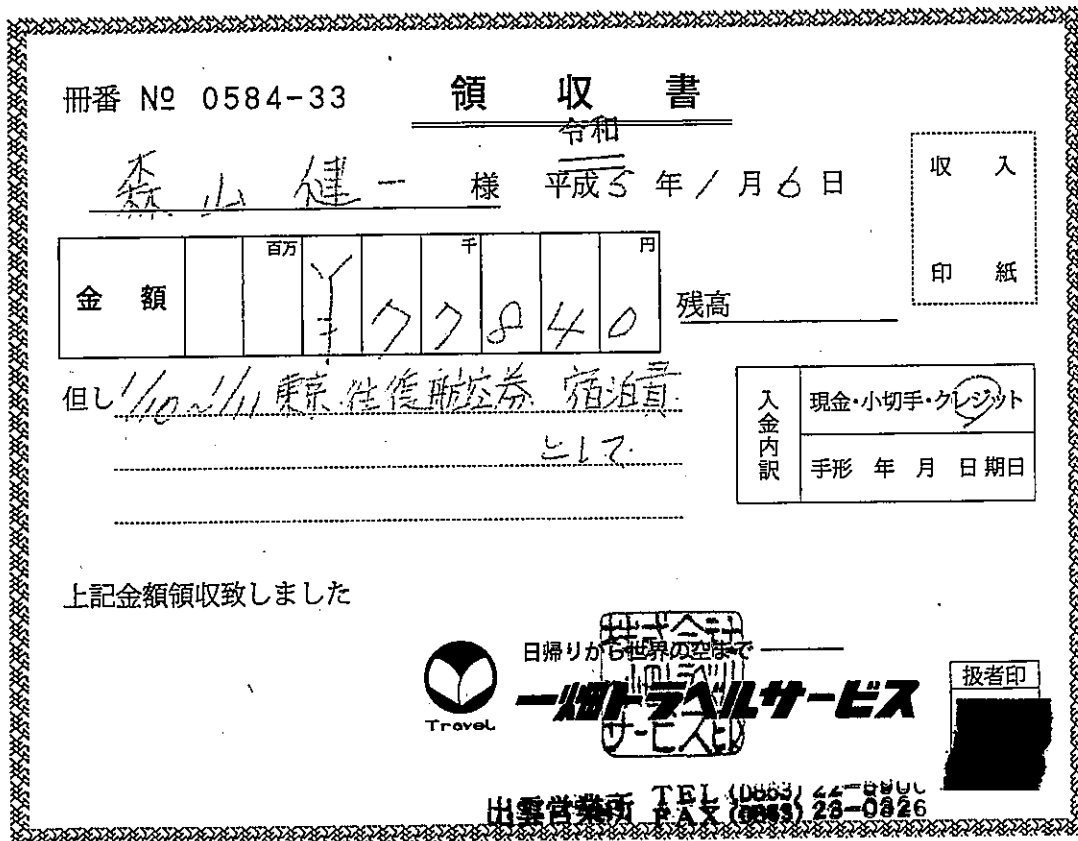 冊番 № 0584-33 領収書
令和
森山 健一 様 平成5年1月6日
収入
印紙
金額 百万 千 円
¥77840
残高
但し 1/10~1/11 東京往復航空券 宿泊費
として
入金内訳 現金・小切手・クレジット
手形 年 月 日期日
上記金額領収致しました
日帰りから世界の空まで
Travel 一畑トラベルサービス
扱者印
出雲営業所 TEL (0853)
FAX (0853) 23-0326